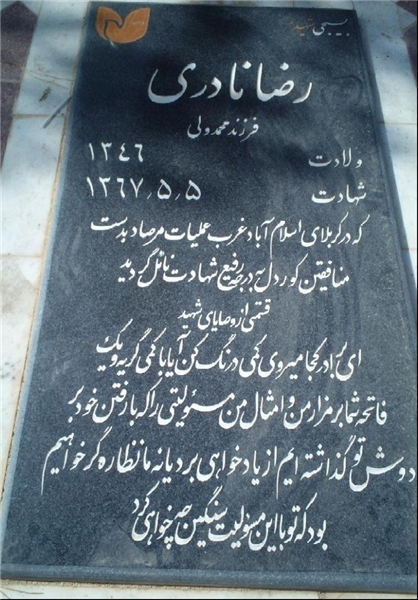 بسیجی شهید
رضا نادری
فرزند محمدولی
ولادت ۱۳۴۶
شهادت ۱۳۶۷٫۵٫۵
که در کربلای اسلام آباد غرب عملیات مرصاد بدست
منافقین کوردل به درجه رفیع شهادت نائل گردید
قسمتی از وصایای شهید
ای برادر کجا میروی کمی درنگ کن آیا با کمی گریه و یک
فاتحه شما بر مزار من و امثال من مسئولیتی را که با رفتن خود بر
دوش تو گذاشته ایم از یاد خواهی برد یا نه ما نظاره گر خواهیم
بود که تو با این مسئولیت سنگین چه خواهی کرد